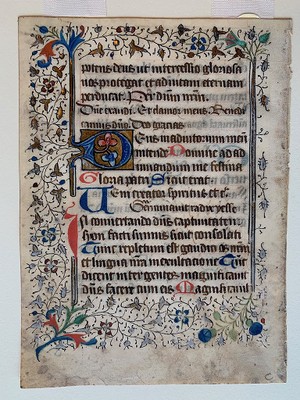 potens deus ut intercessio gloriosa
nos protegat et ad uitam eternam
perducat. Per dnm nrm.
Dne exaudi. Et clamor meus. Bened
camus dno. Deo gracias.
Deus in adiutorium meum
intende Domine ad ad
iuuandum me festina
Gloria patri Sicut erat
Ueni creator spiritus et c
In conuertendo dns captiuitatem
syon facti sumus sicut consolati
Tunc repletum est gaudio os nrm
et lingua nra in exultacione Tunc
dicent inter gentes magnificauit
dns facere cum eis Magnificauit